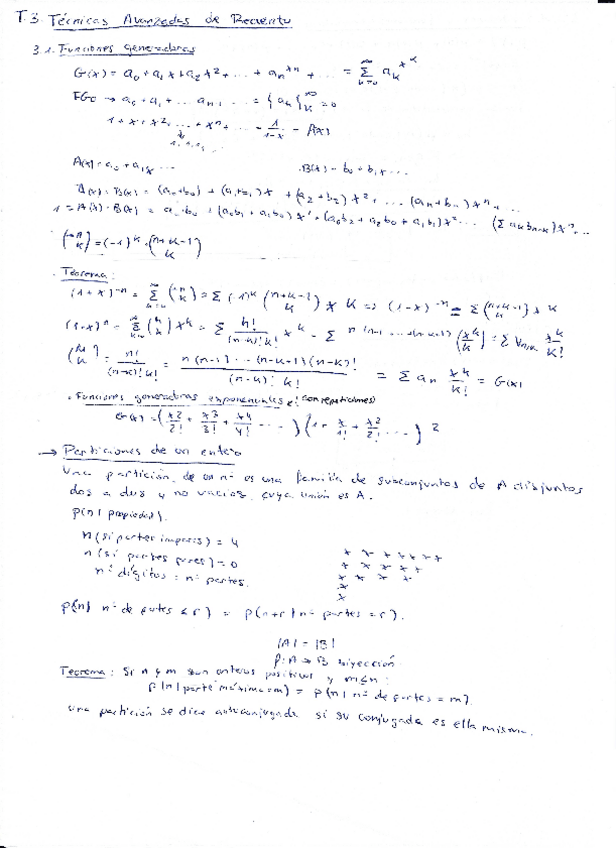 T.3. Técnicas Avanzadas de Recuento
3.1. Funciones generadoras
G(x) = a₀ + a₁x + a₂x² + ... + aₙxⁿ + ... = Σ_{k=0}^∞ aₖ x^k
FGO → a₀ + a₁ + ... aₙ, ... = {aₖ}_{k=0}^∞
1 + x + x² ... + xⁿ + ... = 1/(1-x) = A(x)
1, 1, 1, ...
A(x) = a₀ + a₁x ... B(x) = b₀ + b₁x ...
A(x) · B(x) = (a₀+b₀) + (a₁+b₁)x + (a₂+b₂)x² + ... (aₙ+bₙ)xⁿ + ...
1 = A(x) · B(x) = a₀·b₀ + (a₀b₁ + a₁b₀)x¹ + (a₀b₂ + a₂b₀ + a₁b₁)x² ... (Σ aₖbₙ₋ₖ)xⁿ ...
(-n k) = (-1)^k · (n+k-1 k)
Teorema:
(1+x)^-n = Σ_{k=0}^∞ (-n k) = Σ (-1)^k (n+k-1 k) x^k => (1-x)^-n = Σ (n+k-1 k) x^k
(1+x)^n = Σ (n k) x^k = Σ n!/((n-k)! k!) x^k = Σ n(n-1)...(n-k+1) (x^k/k!) = Σ Vₙ,ₖ x^k/k!
(n k) = n!/((n-k)! k!) = n(n-1)...(n-k+1)(n-k)!/((n-k)! k!) = Σ aₙ x^k/k! = G(x)
Funciones generadoras exponenciales (con repeticiones)
G(x) = (x²/2! + x³/3! + x⁴/4! + ...)(1 + x/1! + x²/2! ...)²
→ Particiones de un entero
Una partición de un nº es una familia de subconjuntos de A disjuntos
dos a dos y no vacíos, cuya unión es A.
p(n | propiedad).
n (si partes impares) = 4
n (si partes pares) = 0
nº dígitos = nº partes.
p(n | nº de partes ≤ r) = p(n+r | nº partes = r).
|A| = |B|
f: A → B biyección
Teorema: Si n y m son enteros positivos y m ≤ n:
p(n | parte máxima = m) = p(n | nº de partes = m).
Una partición se dice autoconjugada si su conjugada es ella misma.